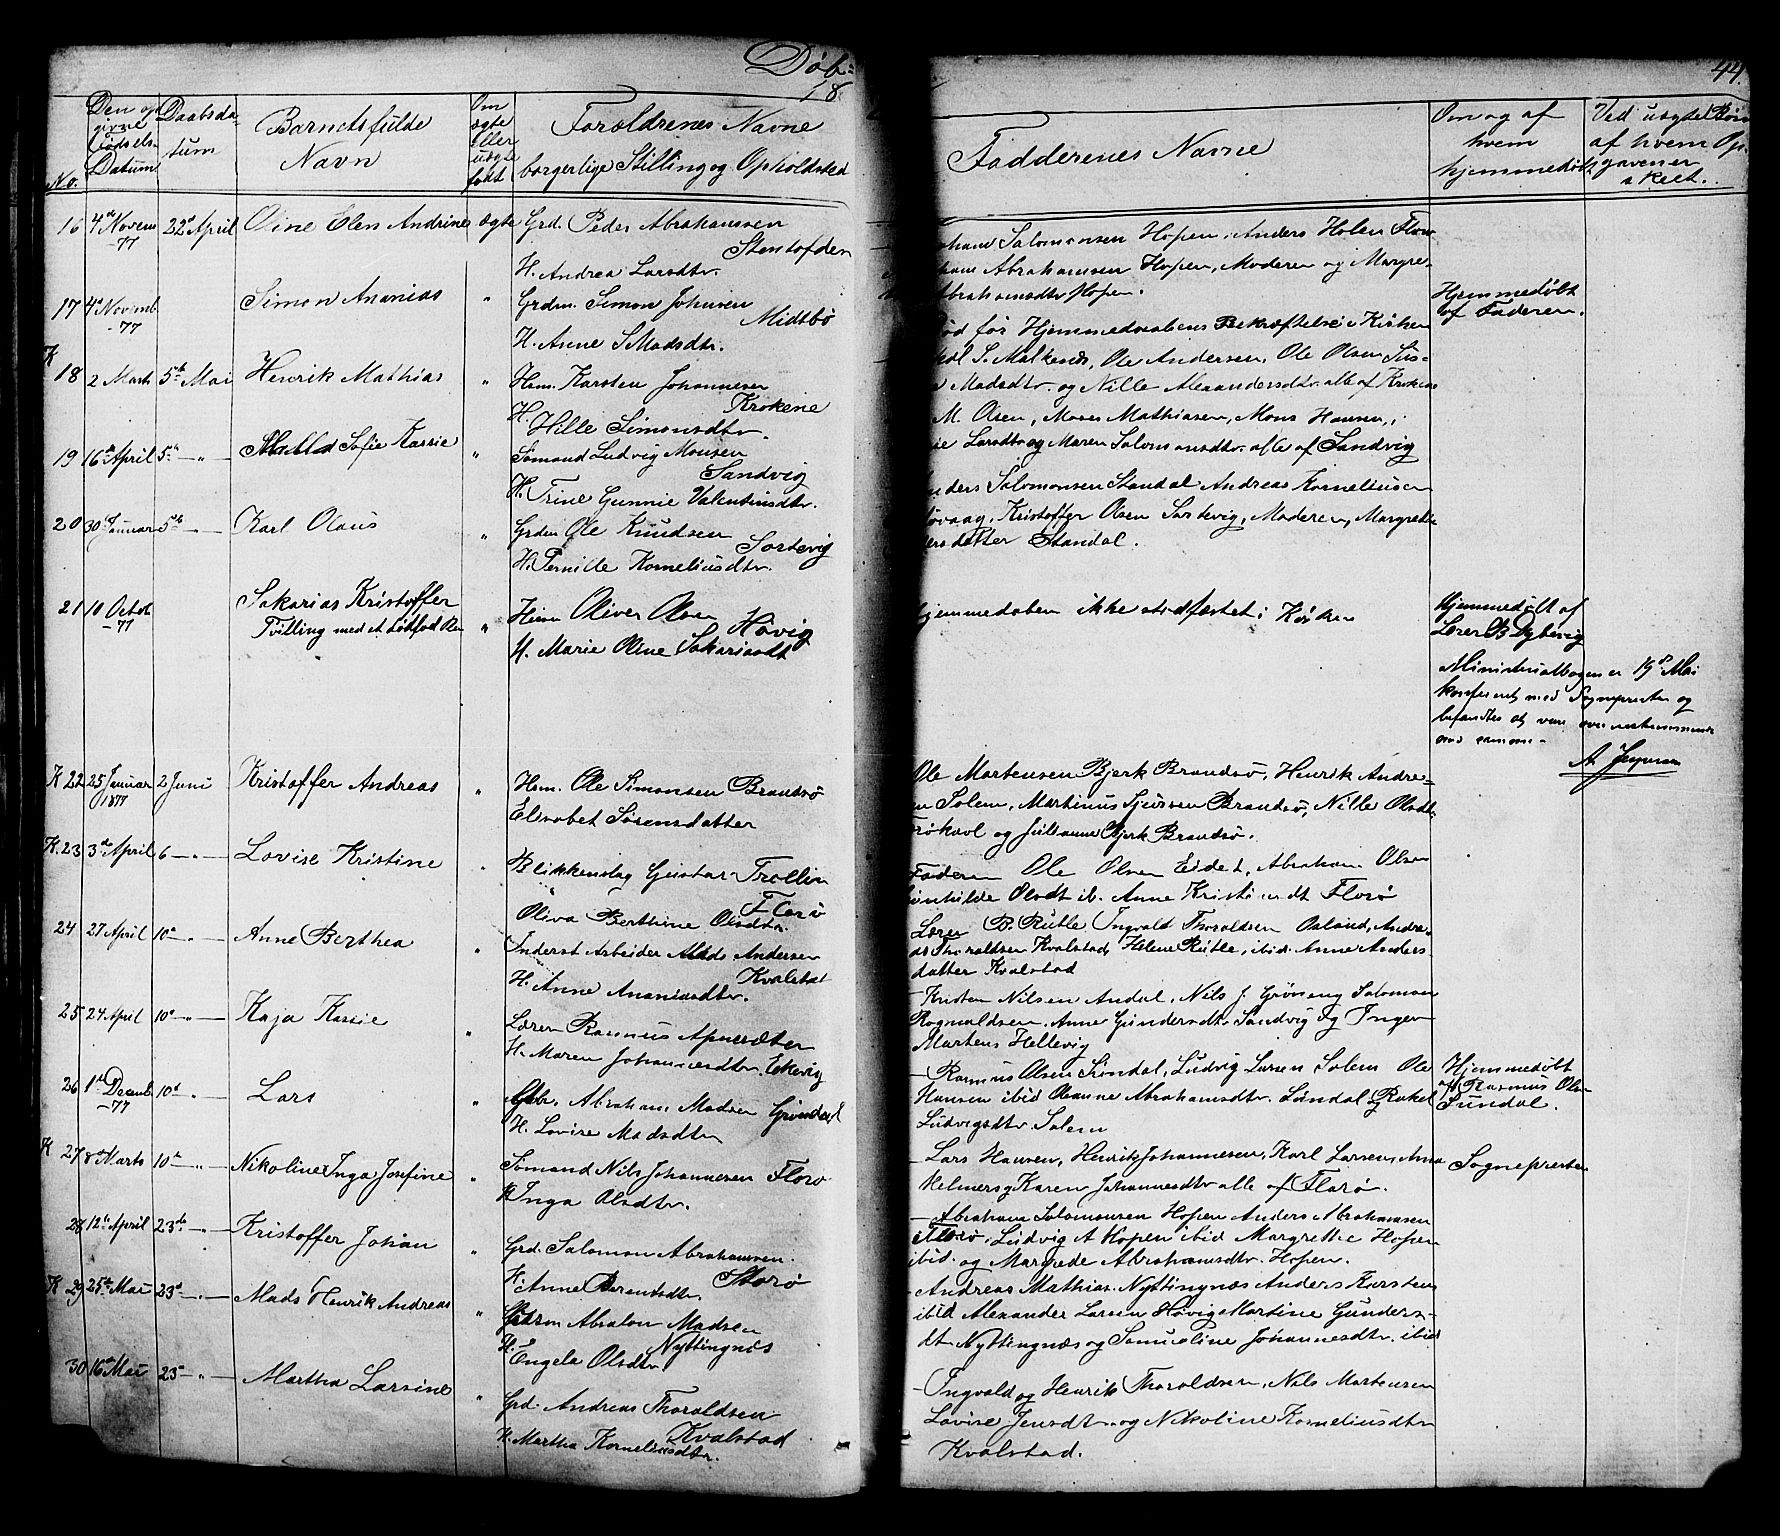 Døb-
18
44.
No.
Den op
givne
Fødsels-
Datum
Daabsda-
tum
Barnetsfulde
Navn
Om
ægte
eller
uægte
født
Forældrenes Navne
borgerlige Stilling og Opholdsted
Fadderenes Navne
Om og af
hvem
hjemmedøbt
Ved uægte Børn
af hvem Op-
gaven er
skeet.
16 4de Novem -77 22de April Oline Elen Andrine ægte Grd. Peder Abrahamsen
Stensfden
H. Andrea Larsdtr.
Salomonsen Hopen, Anders Holen Florø
Abrahamsen Hopen, Moderen og Margre-
Abrahamsdtr Hopen.
17 4de Novemb -77 Simon Ananias " Grdm. Simon Johnsen
Midtbø
H. Anne S Madsdtr.
Død før Hjemmedaabens Bekræftelse i Kirken
Hjemmedøbt
af Faderen.
K 18 2 Marts 5te Mai Henrik Mathias " Hsm. Karsten Johannesen
Krokene
H. Hille Simonsdtr.
S. Ole Andersen, Ole Olsen Sus-
Madsdtr. og Nille Alexandersdtr. alle af Krokene
19 16de April 5te -"- Sofie Kassie " Sømand Ludvig Monsen
Sandvig
H. Trine Gunnie Valentinsdtr.
M. Olsen, Moses Mathiasen, Mons Hansen,
Larsdtr og Maren Salomonsdtr. alle af Sandvig
20 30te Januar 5te -"- Karl Olaus " Grdm Ole Knudsen
Sortevig
H. Pernille Korneliusdtr.
Salomonsen Standal Andreas Korneliusen
Kristoffer Olsen Sortevig, Moderen, Margrethe
datter Standal.
21 10 Octob -77 Sakarias Kristoffer
Tvilling med et
" Hsm Oliver Olsen
Høvig
H. Marie Oline Sakariasdt
Hjemmedaaben ikke stadfæstet i Kirken
Hjemmedøbt af
Lærer B Dybevig
Ministerialbogen er 19de Mai
konfereret med Sognepresten og
befandtes at være overensstemmende
med samme.-
K 22 25 Januar 1878 2 Juni Kristoffer Andreas " Hsm. Ole Simonsen Brandsø
Elisabet Sørensdatter
Ole Mortensen Bjerk Brandsø, Henrik Andre-
Solem, Martinus Brandsø, Nille Olsdtr.
og Julianne Bjerk Brandsø.
K. 23 3de April 6 -"- Lovise Kristine " Blikkenslag Gustav Trollin
Florø
Oliva Berthine Olsdtr.
Faderen Ole Olsen Eidet, Abraham Olsen
Olsdt ib. Anne Florø
24 27 April 10de -"- Anne Berthea " Inderst Arbeider Mads Andersen
Kvalstad
H. Anne Ananiasdtr.
Lærer B. Rutle Ingvald Thoraldsen Aaland, Andre-
Thoraldsen Kvalstad, Helene Rutle, ibid. Anne Anders-
datter Kvalstad
25 24 April 10de -"- Kaja Kassie " Læren Rasmus
H. Maren Johannesdtr. Eikevig
- Kristen Nilsen Andal, Nils J. Grøneng Salomon
Rognvaldsen, Anne Gundersdtr. Sandvig og Inger
Martens Hellevig
26 1de Decemb. -77 10de -"- Lars " Abraham Madsen
H. Lovise Madsdtr
- Rasmus Olsen Sundal, Ludvig Larsen Solem Ole
Hansen ibid Oleanne Abrahamsdtr. Sundal og Rakel
Ludvigsdtr. Solem
Hjemmedøbt
af Rasmus Olsen
Sundal.
K 27 8de Marts 10de -"- Nikoline Inga Josefine " Sømand Nils Johannesen Florø
H. Inga Olsdtr.
- Lars Hansen, Henrik Johannesen, Karl Larsen, Anna
Helmers og Karen Johannesdtr. alle af Florø.
Sognepresten
28 12te April 23de -"- Kristoffer Johan " Grd. Salomon Abrahamsen
Storø
H. Anne Berentsdtr.
- Abraham Salomonsen Hopen Anders Abrahamsen
Florø, Ludvig A Hopen ibid Margrethe Hopen
ibid. og Margrede Abrahamsdtr. Hopen.
K 29 25de Mai 23de -"- Mads Henrik Andreas " Absalon Madsen
Nyttingnæs
H. Engela Olsdtr
- Andreas Mathias. Nyttingnæs Anders Karsten
ibid Alexander Larsen Høvig Martine Gunders-
dt Nyttingnæs og Samueline Johannesdtr. ibid
30 16de Mai 23de -"- Martha Larsine " Grd. Andreas Thoraldsen
Kvalstad
H. Martha Korneliusdtr.
- Ingvald og Henrik Thoraldsen, Nils Martensen
Lovise Jensdt. og Nikoline Korneliusdtr
Kvalstad.